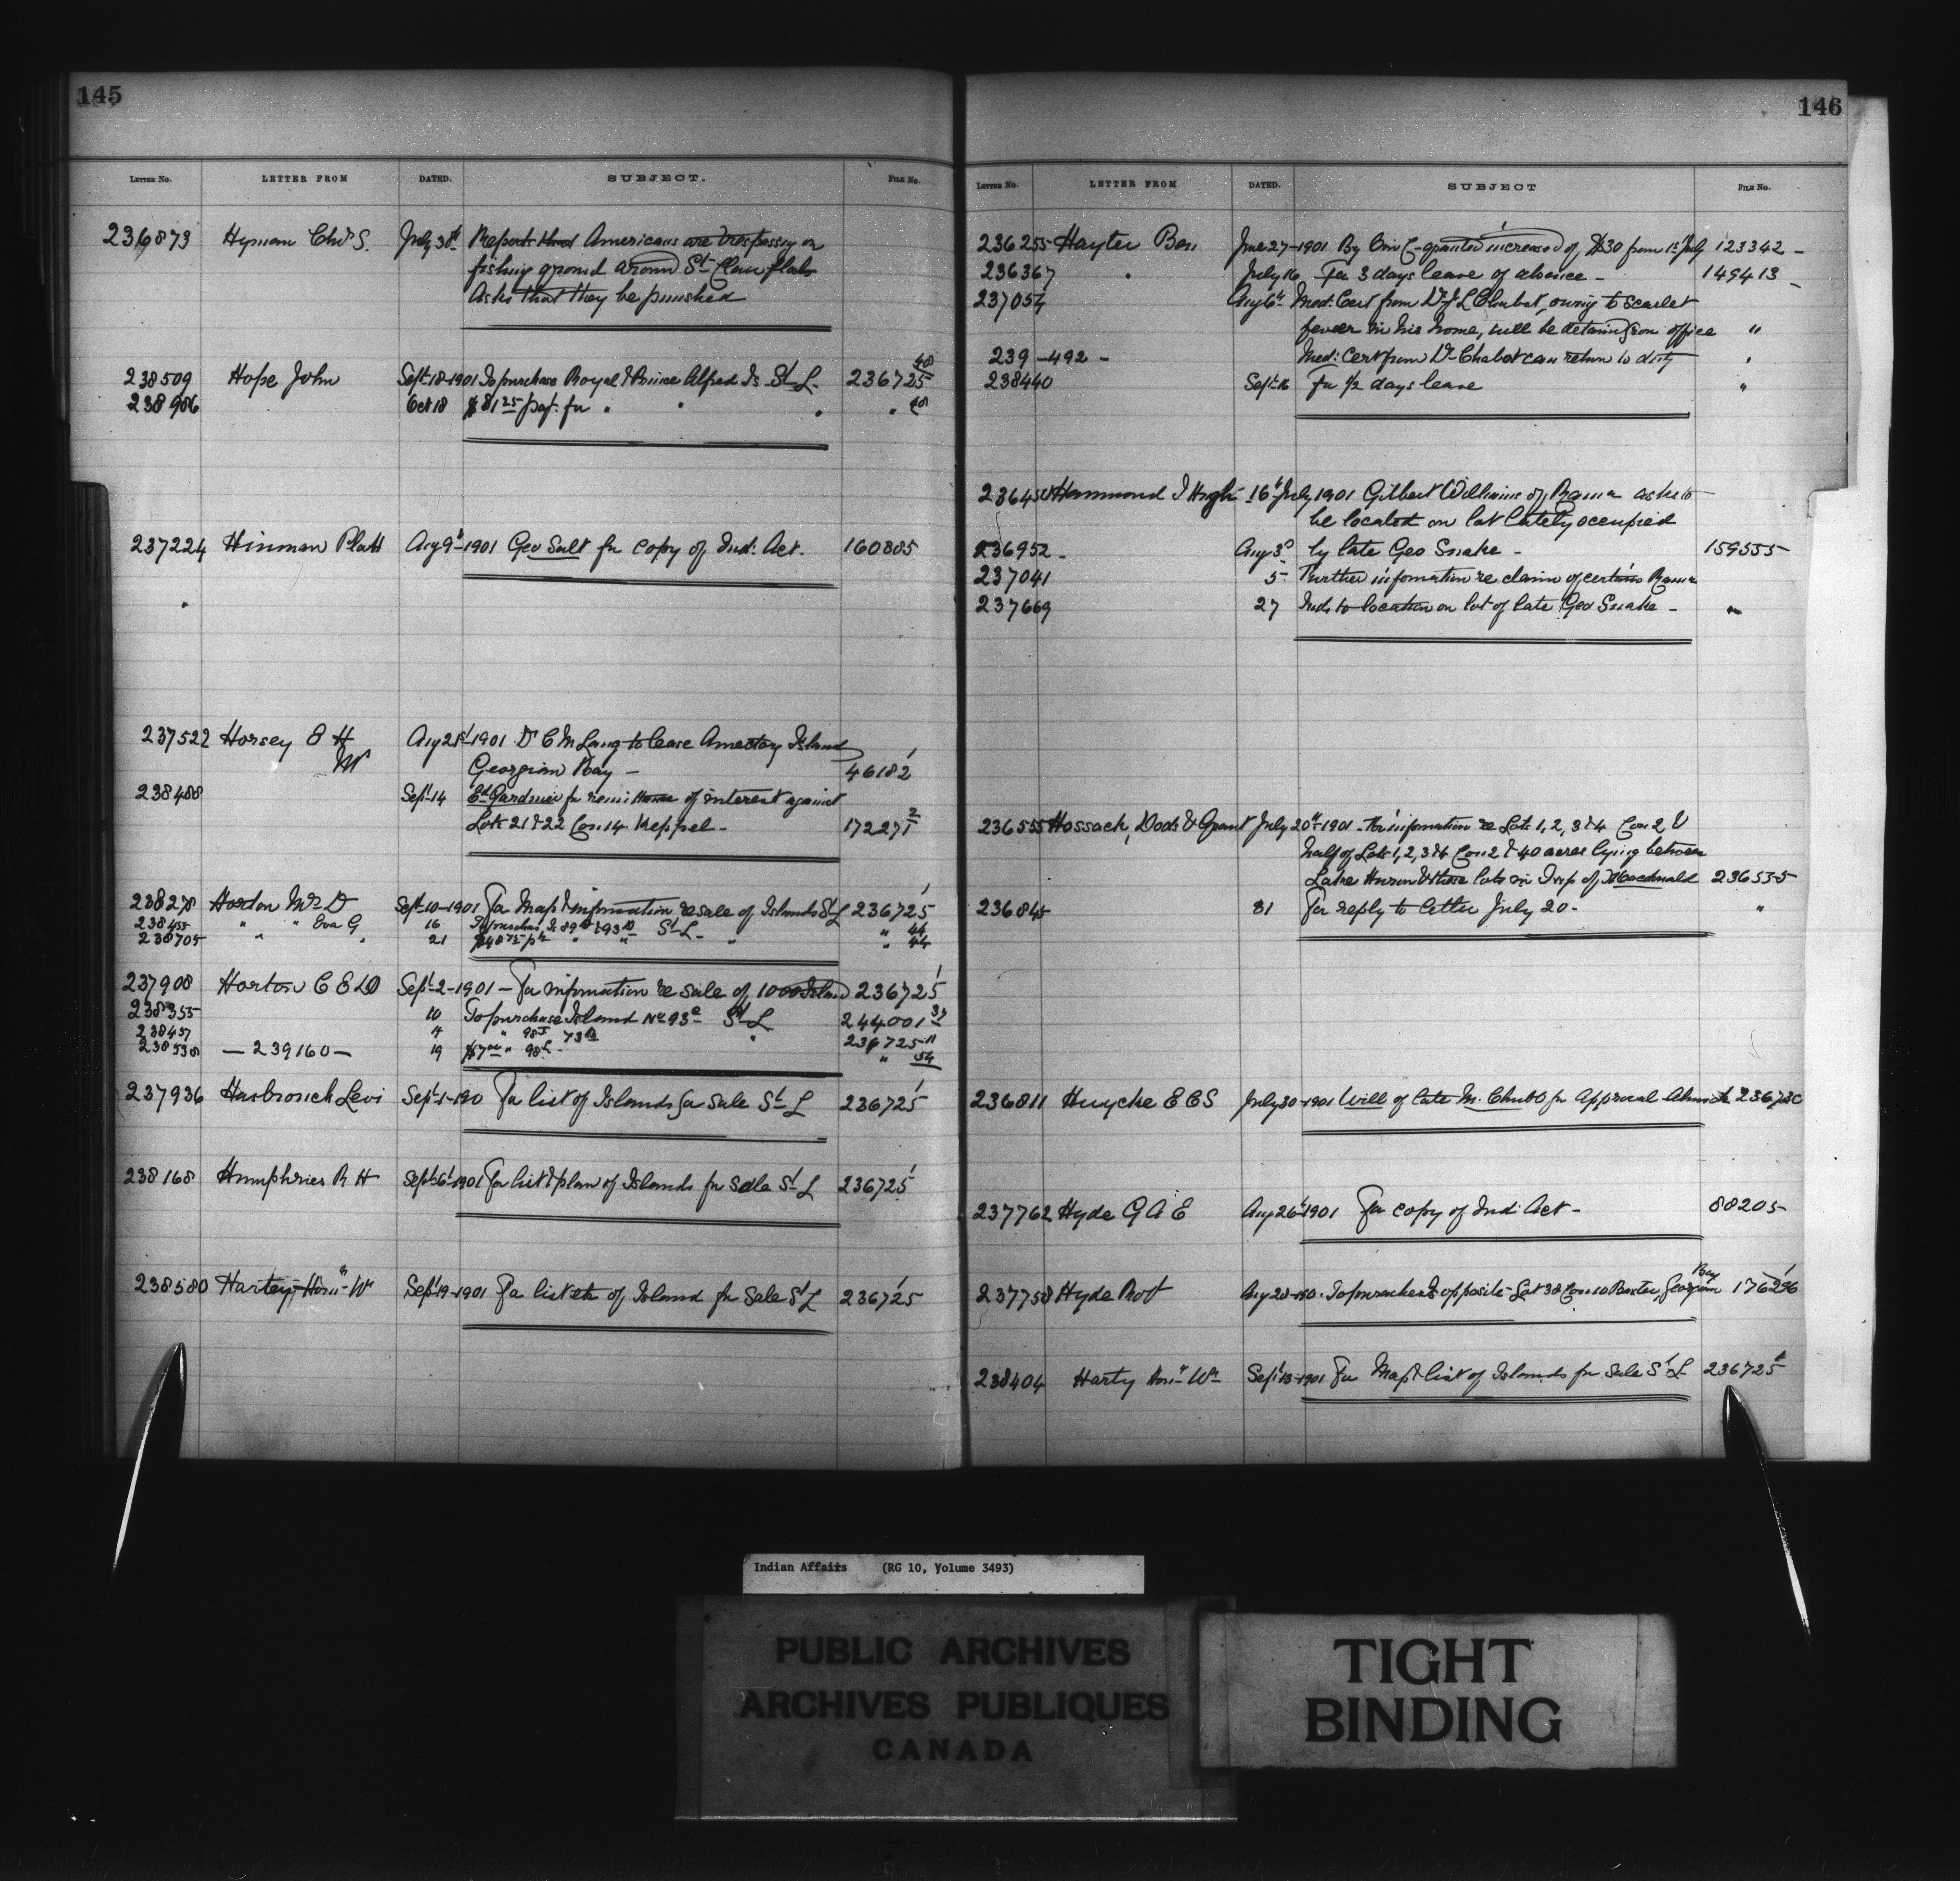 145
LETTER NO. LETTER FROM DATED. SUBJECT. FILE NO.
236873 Hyman Chas S. July 30th Reports that Americans are trespassing on
fishing ground around St Clair flats
Asks that they be punished
238509 Hope John Sept 18-1901 To purchase Royal & Prince Alfred Is St L. 236725 48
238986 Oct 18 $81 25 pay: for " " " " 48
237224 Hinman Platt Aug 9th-1901 Geo Salt for copy of Ind: Act. 160885
237522 Horsey E H Aug 21st-1901 Dr C M Lang to lease Island
MP Georgian Bay - 46182 1
238488 Sept 14 Ed Gardner for remittance of interest against
Lots 21 & 22 Con 14 Keppel - 172271 2
238278 Horton Mrs D Sept-10-1901 For Map & information re sale of Islands St L 236725 1
238455 " " Eva G 16 To purchase Is 89 & 93 St L - " 44
238705 " " 21 $48 75 " " " " 44
237908 Horton C E LD Sept-2-1901 - For information re sale of 1000 Island 236725 1
238355 10 To purchase Island No 93 St L 244001
238457 " 98 236725
238538 - 239160 - 19 $7 00 " 98 " 54
237936 Hasbrouck Levi Sept-1-190 For list of Islands for sale St L 236725 1
238168 Humphries R H Sept 6-1901 For list & plan of Islands for sale St L 236725 1
238580 Hartey, Hon W Sept 19-1901 For list etc of Island for Sale St L 236725 1
146
LETTER NO. LETTER FROM DATED. SUBJECT FILE NO.
236255 Hayter Ben June 27-1901 By O in C - granted increase of $30 from 1st July 123342 -
236367 " July 16 For 3 days leave of absence - 149413
237054 Aug 6th Med: Cert from Dr J L Chabot, owing to scarlet
fever in his home, will be detained from office "
239-492 - Med: Cert from Dr Chabot can return to duty "
238440 Sept 16 For 1/2 days leave "
236450 Hammond J Hugh 16th July 1901 Gilbert Williams of Rama asks to
be located on lot lately occupied
236952 - Aug 3d by late Geo Snake - 159555
237041 5 - Further information re claim of certain Rama
237669 27 Inds to location on lot of late Geo Snake - "
236555 Hossack, Dods & Grant July 20th-1901 - For information re Lots 1, 2, 3 & 4 Con 2 &
half of Lots 1, 2, 3 & 4 Con 2 & 40 acres lying between
Lake Huron & these lots in Twp of Macdonald 236535
236845 31 For reply to letter July 20 - "
236811 Huycke E C S July 30-1901 Will of late M. Chubb for Approval Alnwick
237762 Hyde G A E Aug 26th 1901 For copy of Ind: Act - 88205
237758 Hyde Robt Aug 28-190 . To purchase Is opposite Lot 38 Con 10 Baxter, Georgian Bay
238404 Harty Hon Wm Sept 13-1901 For Map & list of Islands for sale St L 236725
Indian Affairs (RG 10, Volume 3493)
PUBLIC ARCHIVES
ARCHIVES PUBLIQUES
CANADA
TIGHT
BINDING